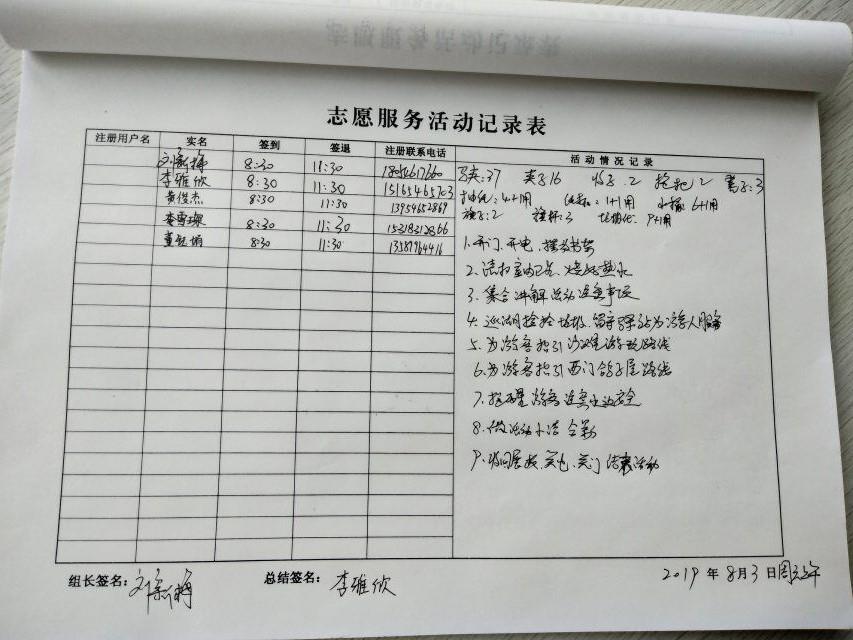 志愿服务活动记录表
注册用户名 实名 签到 签退 注册联系电话 活动情况记录
刘新梅 8:30 11:30 18054617660
李雅欣 8:30 11:30 15165465703
黄俊杰 8:30 11:30 13954652869
李雪璟 8:30 11:30 15318312866
董凯娟 8:30 11:30 13589964416
马夹:37 夹子16 2 2 3
4+1用 1+1用 6+1用
旗子:2 旗杆:3 垃圾袋:9+1用
1.开门、开电、摆放
2.清扫室内卫生、烧好热水
3.集合讲解活动注意事项
4.巡湖捡拾垃圾、留守驿站为游人服务
5.为游客指引沙滩游玩路线
6.为游客指引西门鸽子屋路线
7.提醒游客注意水边安全
8.做活动小结
9.收回 关电、关门 结束活动
组长签名: 刘新梅 总结签名: 李雅欣 2019年8月3日周六上午